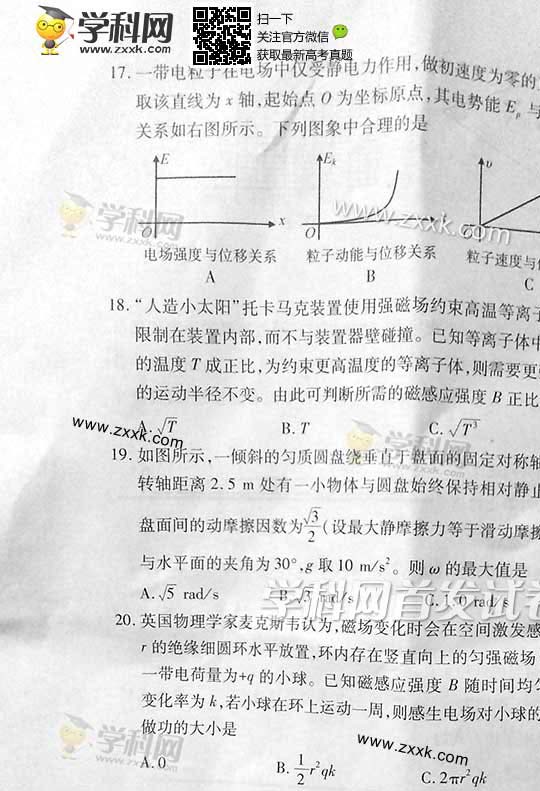 学科网
www.zxxk.com
扫一下
关注官方微信
获取最新高考真题
17. 一带电粒子在电场中仅受静电力作用,做初速度为零的
取该直线为 x 轴,起始点 O 为坐标原点,其电势能 Eₚ 与
关系如右图所示。下列图象中合理的是
E
O
x
Eₖ
O
www.zxxk.com
υ
学科网
电场强度与位移关系 粒子动能与位移关系 粒子速度与位
A B C
18. “人造小太阳”托卡马克装置使用强磁场约束高温等离子
限制在装置内部,而不与装置器壁碰撞。已知等离子体中
的温度 T 成正比,为约束更高温度的等离子体,则需要更
的运动半径不变。由此可判断所需的磁感应强度 B 正比
A. √T B. T C. √T³
www.zxxk.com
学科网
19. 如图所示,一倾斜的匀质圆盘绕垂直于盘面的固定对称轴
转轴距离 2.5 m 处有一小物体与圆盘始终保持相对静止
盘面间的动摩擦因数为√3/2(设最大静摩擦力等于滑动摩擦
与水平面的夹角为30°,g 取 10 m/s²。则 ω 的最大值是
A. √5 rad/s B. √3 rad/s C. 1.0 rad/s
学科网首发试卷
20. 英国物理学家麦克斯韦认为,磁场变化时会在空间激发感
r 的绝缘细圆环水平放置,环内存在竖直向上的匀强磁场
一带电荷量为+q 的小球。已知磁感应强度 B 随时间均匀
变化率为 k,若小球在环上运动一周,则感生电场对小球的
做功的大小是
学科网
www.zxxk.com
A. 0 B. 1/2 r²qk C. 2πr²qk